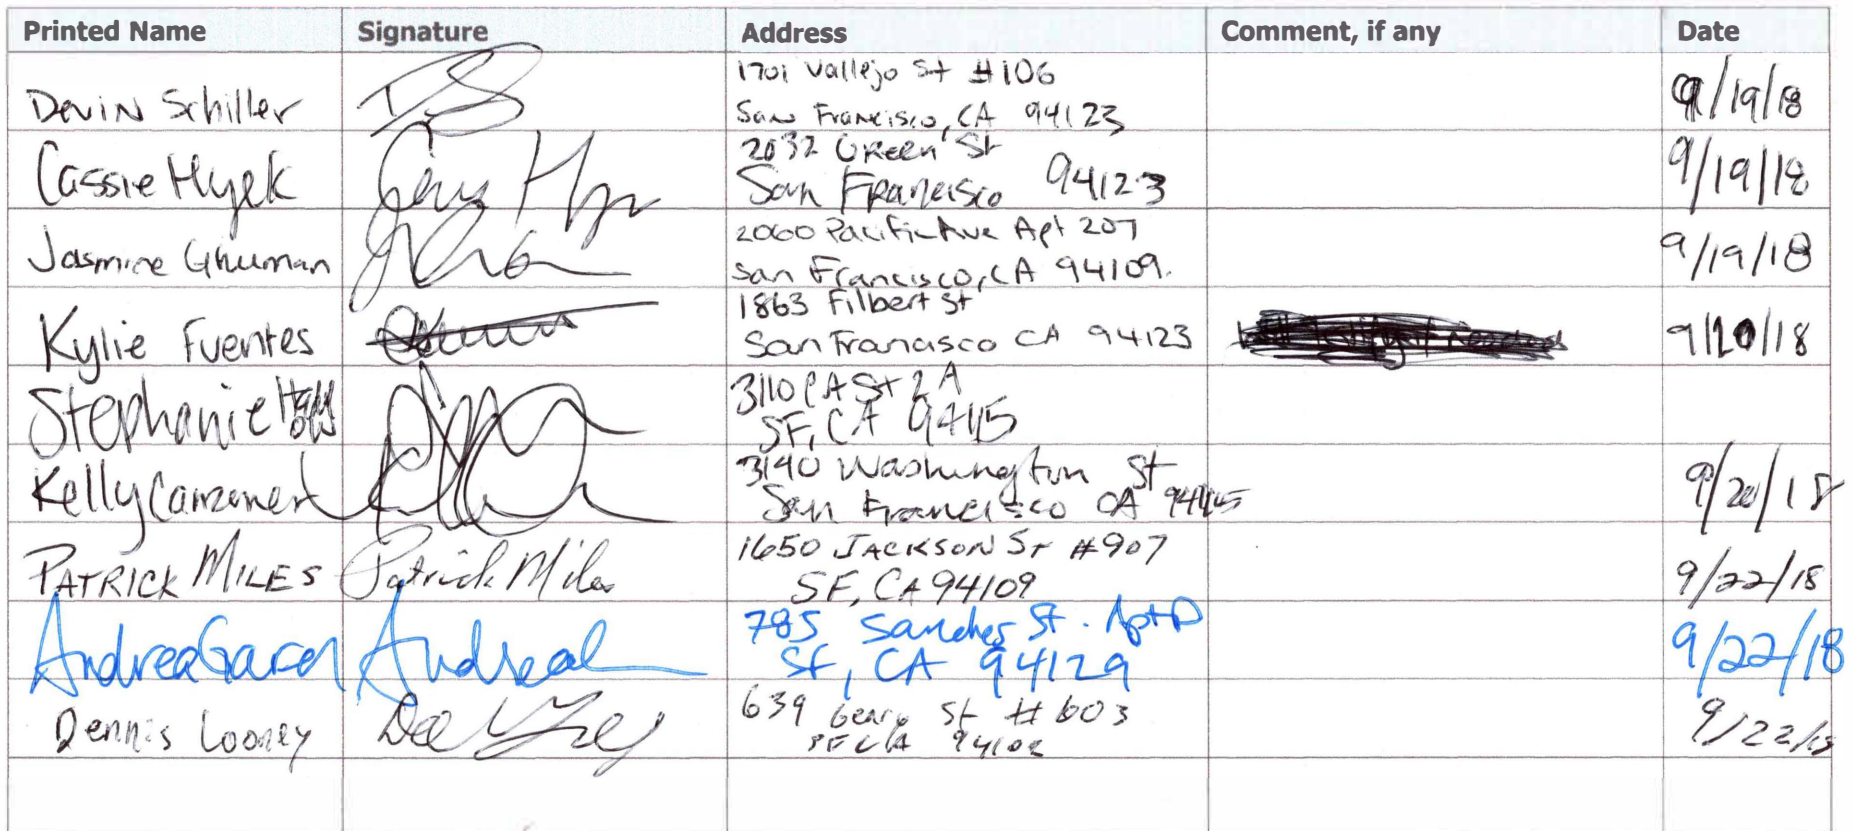 Printed Name Signature Address Comment, if any Date
Devin Schiller 1701 Vallejo St #106
San Francisco, CA 94123 9/19/18
Cassie Hyek 2032 Green St
San Francisco 94123 9/19/18
Jasmine Ghuman 2060 Pacific Ave Apt 207
San Francisco, CA 94109. 9/19/18
Kylie Fuentes 1863 Filbert St
San Francisco CA 94123 9/20/18
Stephanie 3110 CA St 2A
SF, CA 94115
Kelly 3140 Washington St
San Francisco CA 94115 9/20/18
PATRICK MILES Patrick Miles 1650 JACKSON ST #907
SF, CA 94109 9/22/18
Andrea 785 Sanchez St. Apt D
SF, CA 94129 9/22/18
Dennis Looney 639 Geary St #603
SF CA 94102 9/22/18